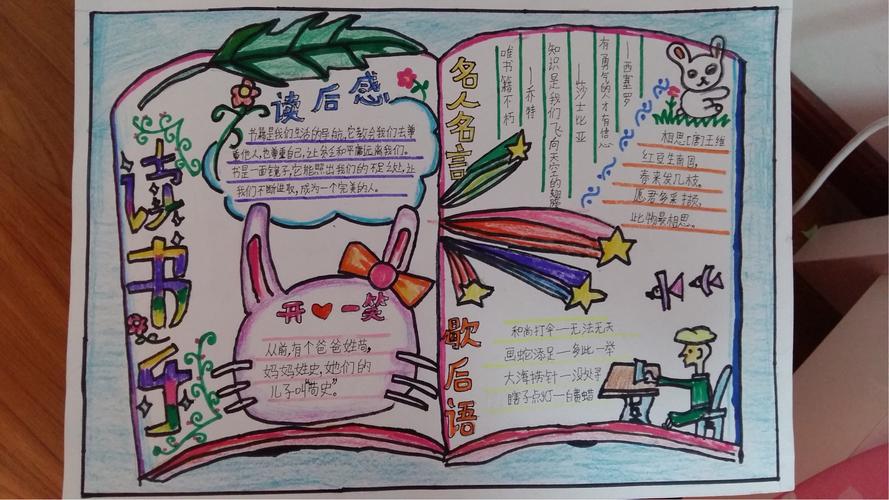 读书乐
读后感
书籍是我们生活的导航,它教会我们去尊
重他人,也尊重自己,让参与和平庸远离我们。
书是一面镜子,它能照出我们的不足之处,让
我们不断进取,成为一个完美的人。
开一笑
从前,有个爸爸姓苟,
妈妈姓史,她们的
儿子叫“苟史”。
名人名言
唯书籍不朽
——乔特
知识是我们飞向天空的翅膀
——莎士比亚
有勇气的人才有信心
——西塞罗
相思[唐]王维
红豆生南国,
春来发几枝。
愿君多采撷,
此物最相思。
歇后语
和尚打伞—无法无天
画蛇添足—多此一举
大海捞针—没处寻
瞎子点灯—白费蜡